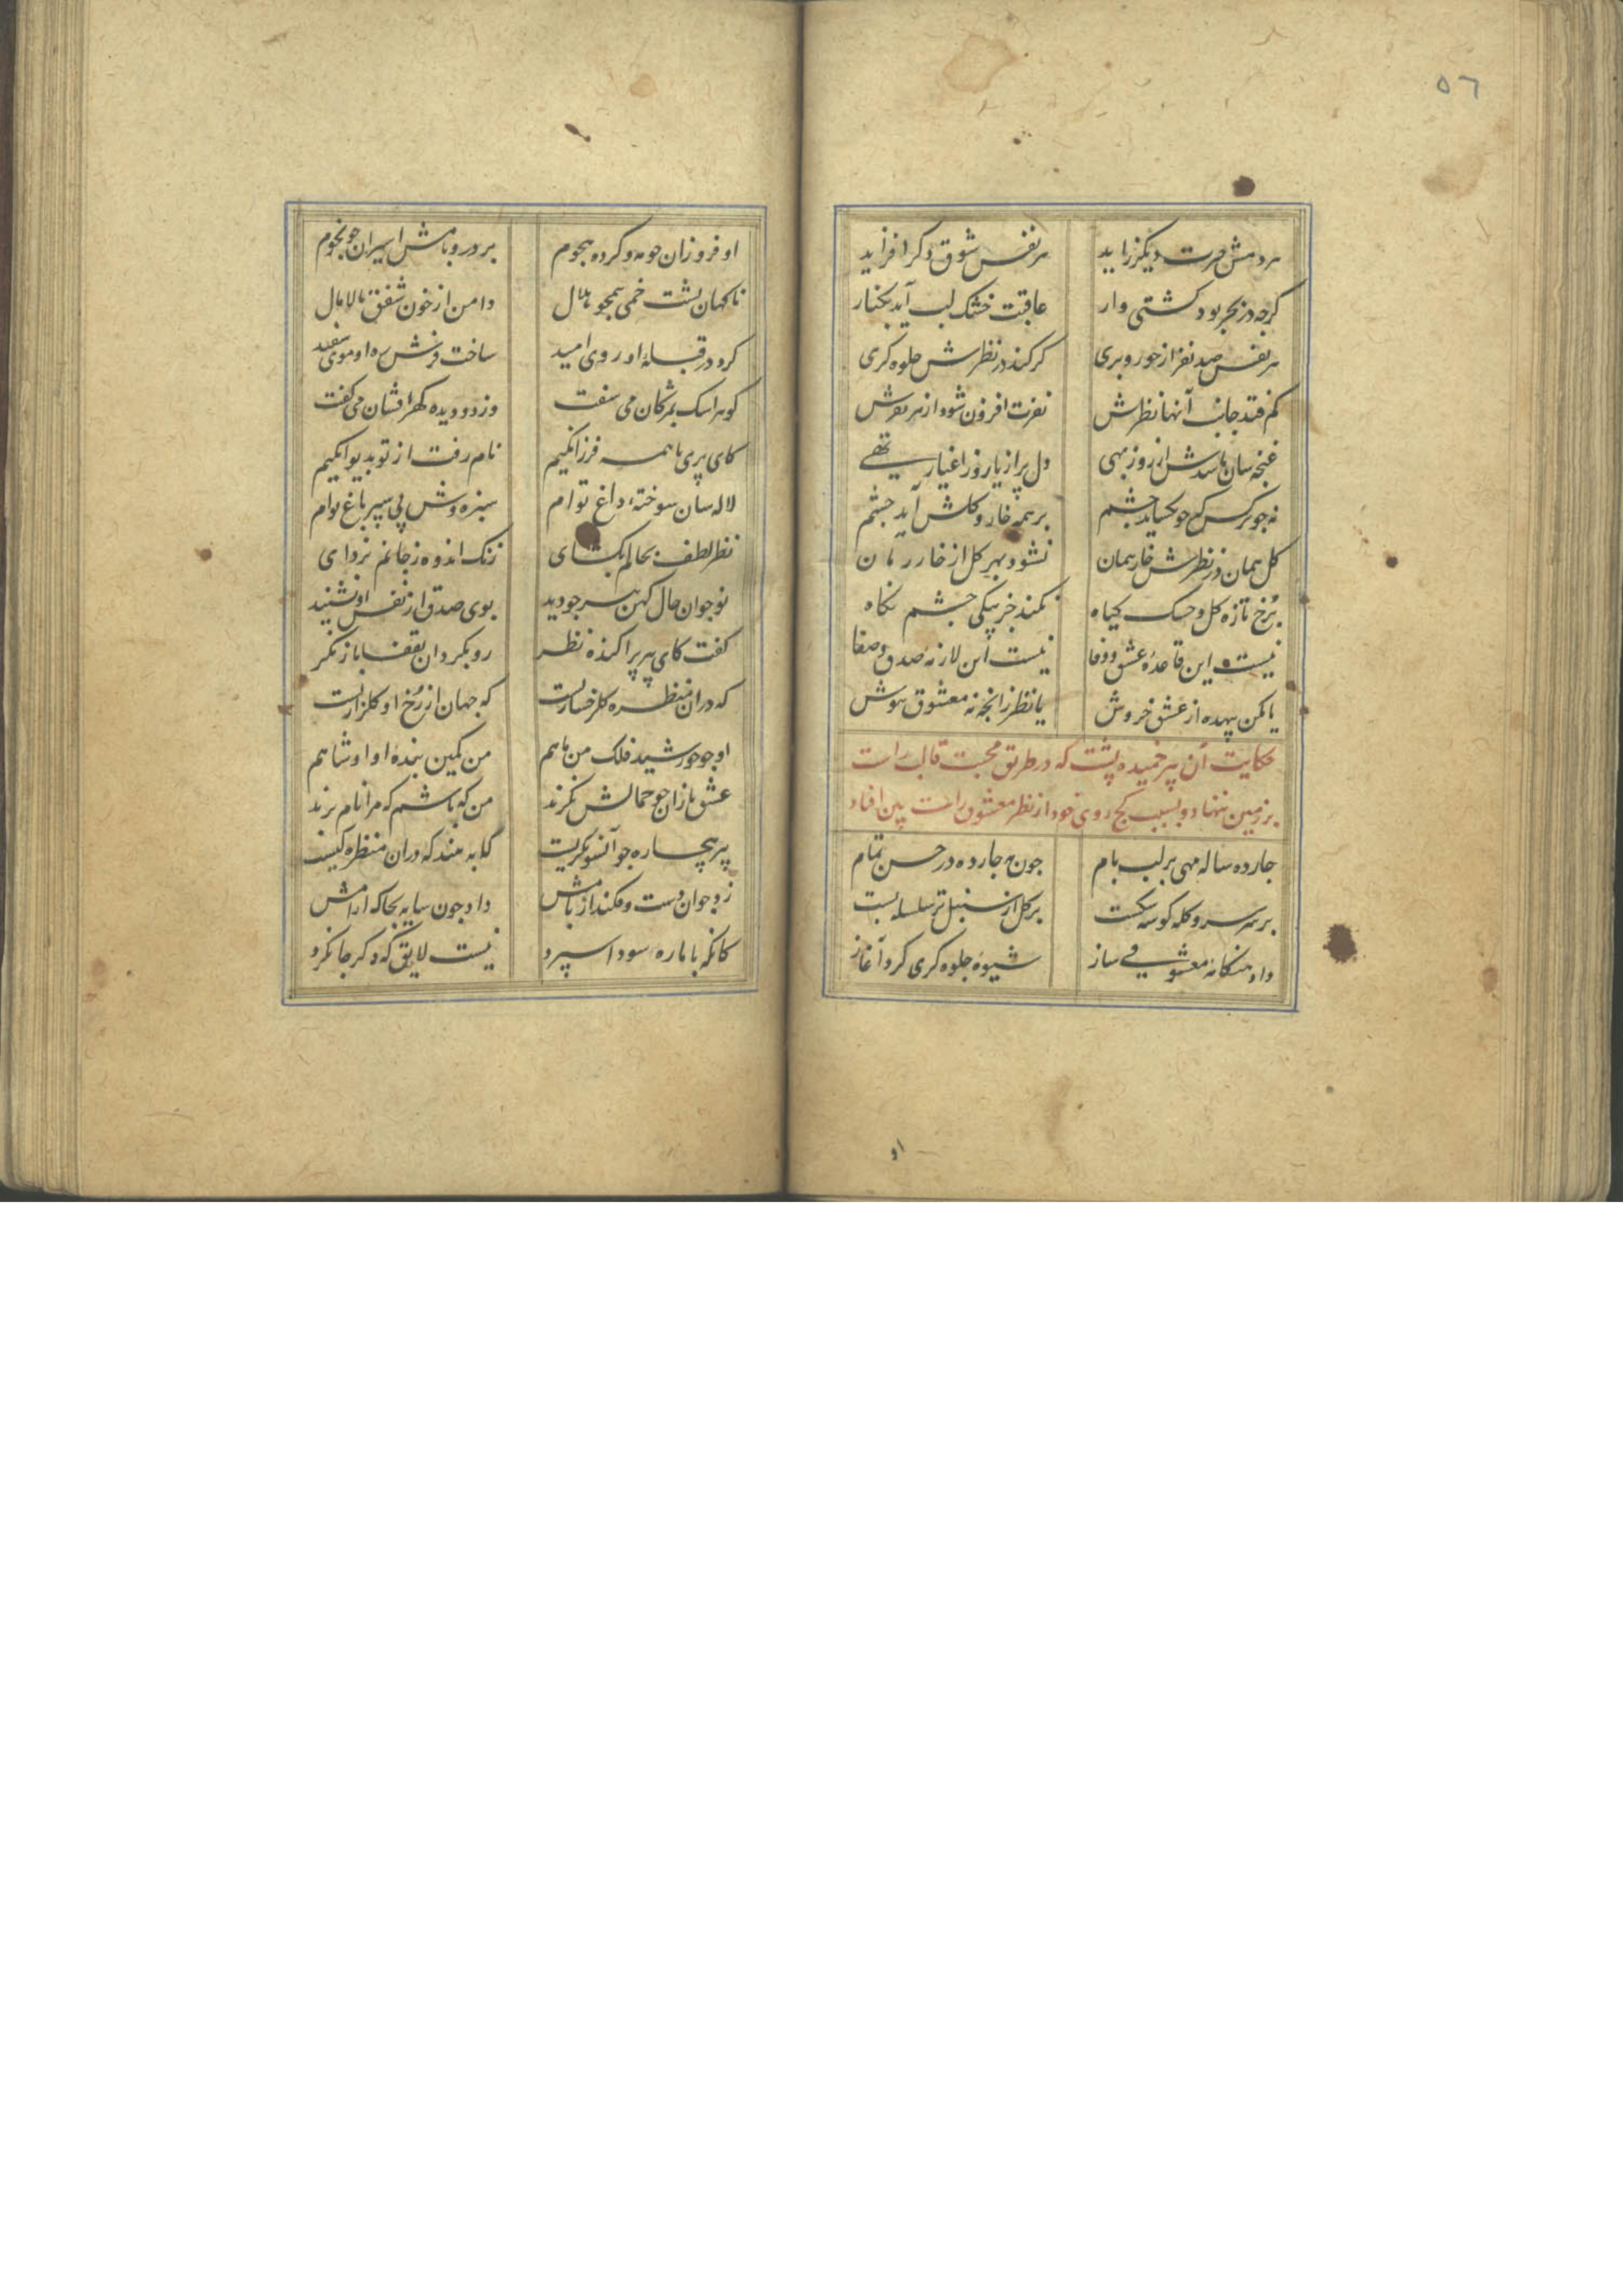 ٥٦
هر دمش حیرت دیگر زاید هر نفس شوق دکر افزاید
کرچه در بحر بود کشتی وار عاقبت خشک لب آید بکنار
هر نفس صد نفر از حور و پری کر کند در نظرش جلوه کری
کم فتد جانب آنها نظرش نفرت افزون شود از هر نفرش
غنچه سان باشدش از روز بهی دل پر از یار و ز اغیار تهی
نه چو نرکس که چو بکشاید چشم بر همه خار و کلش آید چشم
کل همان در نظرش خار همان نشود بهر کل از خار رمان
برخ تازه کل و خشک کیاه نکند جز بیکی چشم نکاه
نیست این قاعدۀ عشق و وفا نیست این لازمۀ صدق و صفا
یا مکن بیهده از عشق خروش یا نظر زانچه نه معشوق بپوش
حکایت آن پیر خمیده پشت که در طریق محبت قالب راست
بر زمین ننهاد و بسبب کج روی خود از نظر معشوق راست بین افتاد
چارده ساله مهی بر لب بام چون مه چارده در حسن تمام
بر سر سرو کله کوشه شکست بر کل از سنبل تر سلسله بست
داد هنکامۀ معشوقی ساز شیوۀ جلوه کری کرد آغاز
او
او فروزان چو مه و کرده هجوم بر در و بامش اسیران چو نجوم
ناکهان پشت خمی همچو هلال دامن از خون شفق مالامال
کرد در قبلۀ او روی امید ساخت فرش ره او موی سفید
کوهر اشک بمژکان می سفت وز دو دیده کهر افشان می کفت
کای پری با همه فرزانکیم نام رفت از تو بدیوانکیم
لاله سان سوختۀ داغ توام سبزه وش پی سپر باغ توام
نظر لطف بحالم بکشای زنک اندوه ز جانم بزدای
نوجوان حال کهن پیر چو دید بوی صدق از نفس او نشنید
کفت کای پیر پراکنده نظر رو بکردان بقفا باز نکر
که دران منظره کلرخساریست که جهان از رخ او کلزاریست
او چو خورشید فلک من ماهم من کمین بندۀ او او شاهم
عشق بازان چو جمالش نکرند من که باشم که مرا نام برند
پیر بیچاره چو آنسو نکریست تا به بیند که دران منظره کیست
زد جوان دست و فکند از بامش داد چون سایه بخاک آرامش
کانکه با ما ره سودا سپرد نیست لایق که دکر جا نکرد